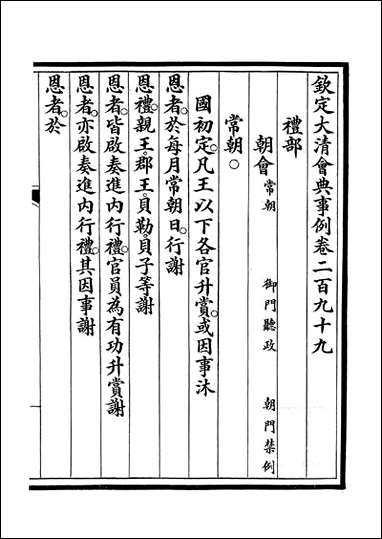 欽定大清會典事例卷二百九十九
禮部
朝會 常朝 御門聽政 朝門禁例
常朝。
國初定。凡王以下各官升賞。或因事沐
恩者。於每月常朝日。行謝
恩禮。親王。郡王。貝勒。貝子等謝
恩者。皆啟奏進內行禮。官員為有功升賞謝
恩者。亦啟奏進內行禮。其因事謝
恩者。於